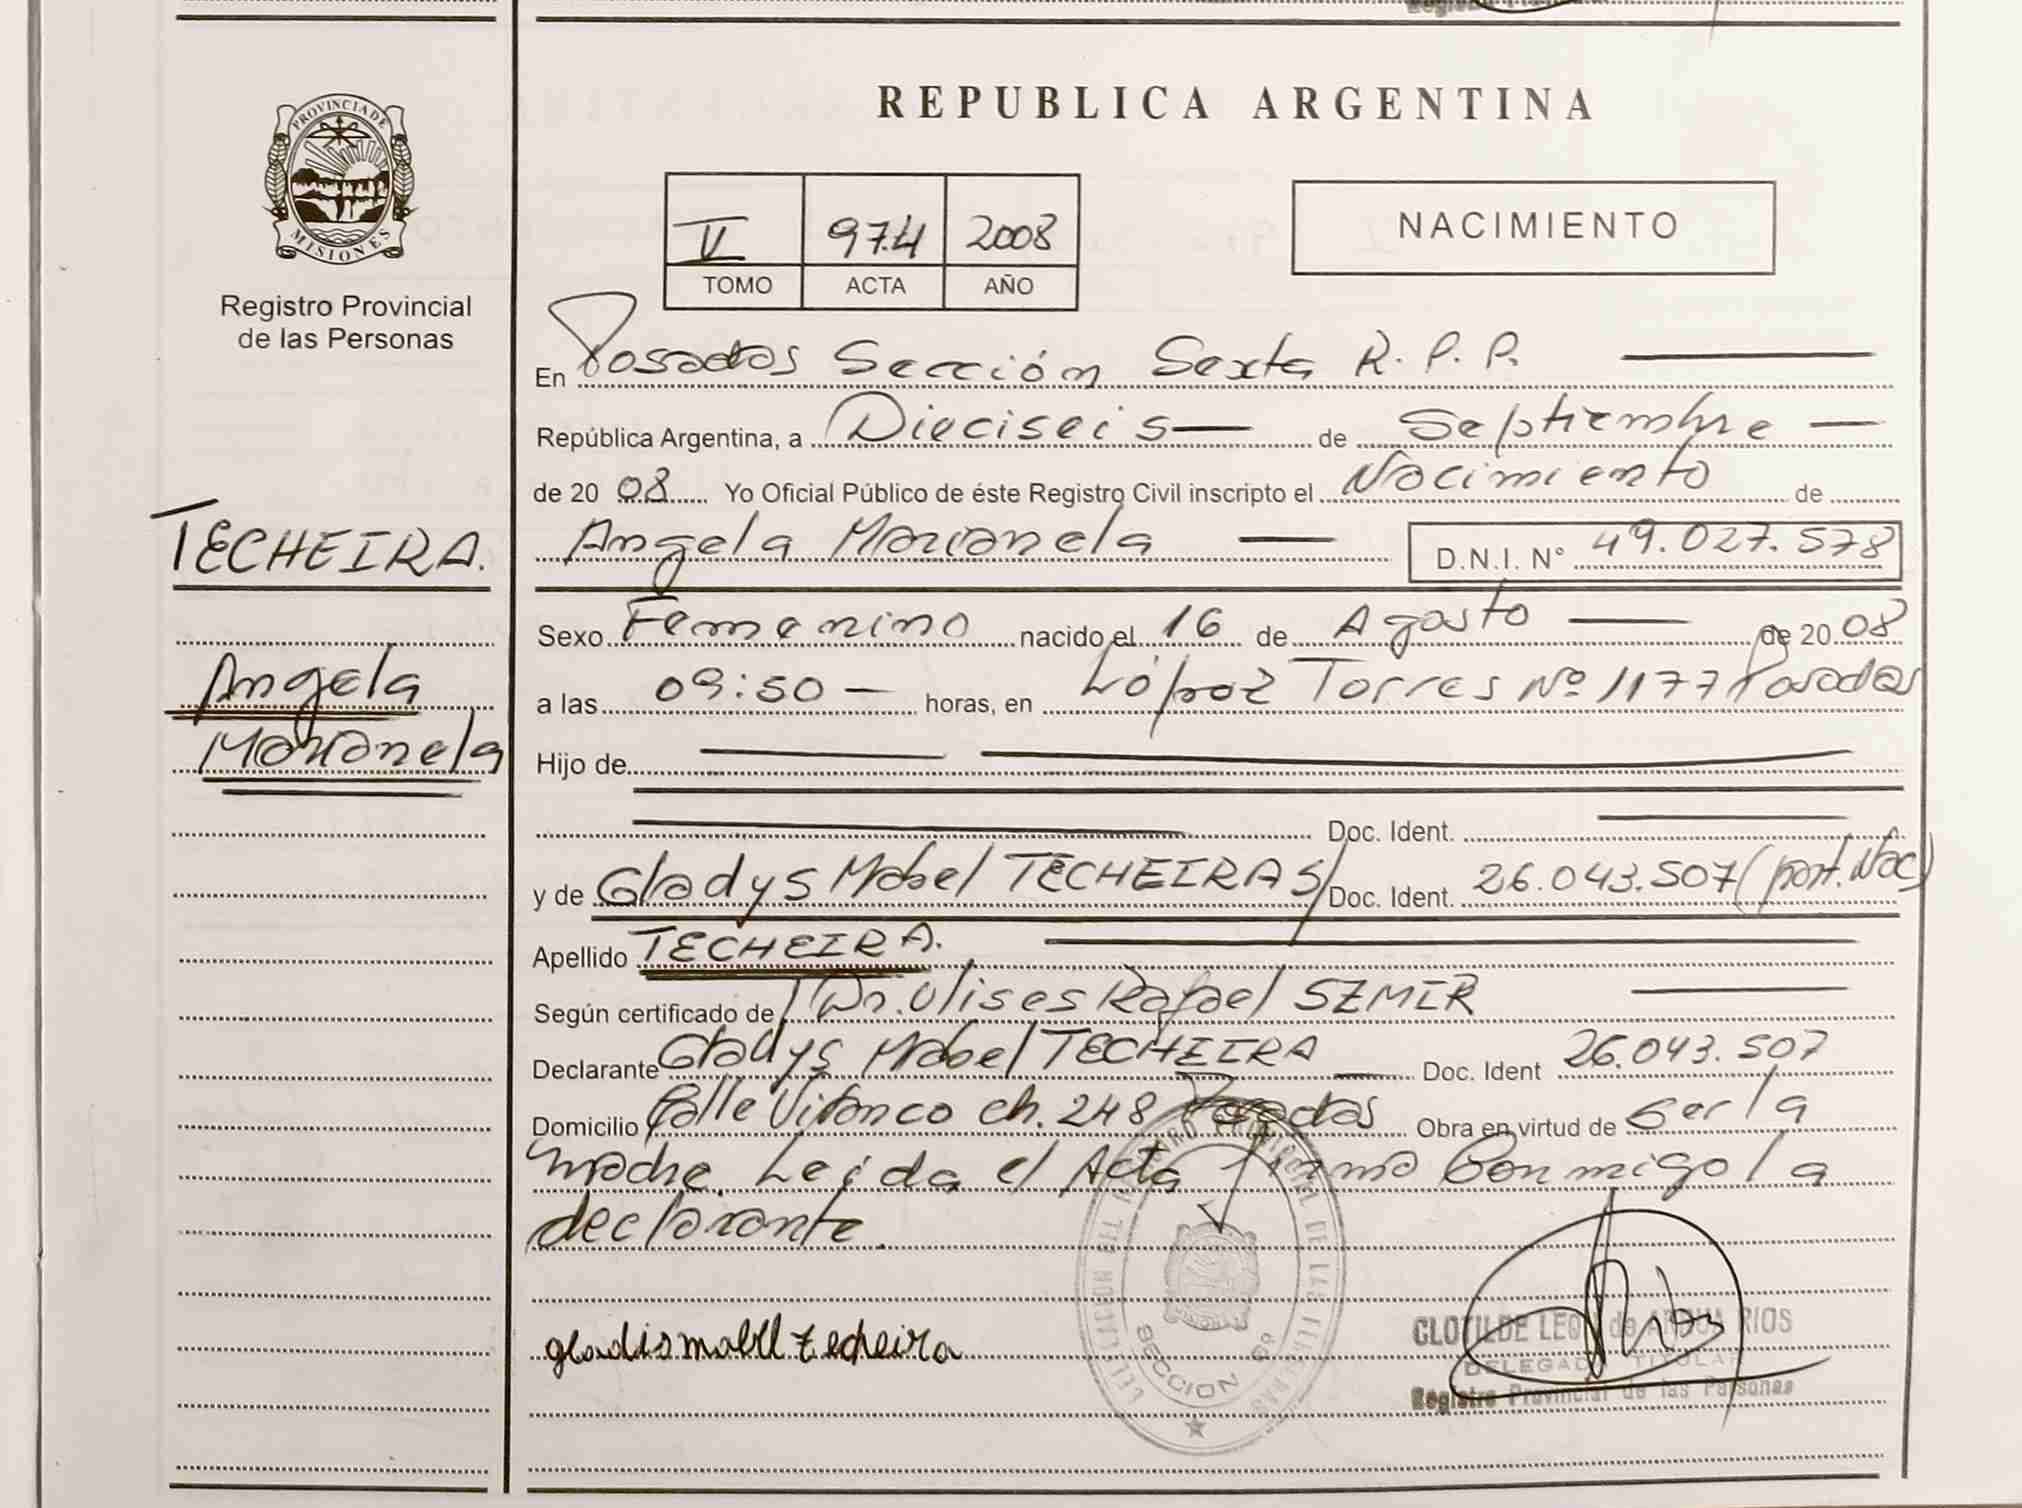 REPUBLICA ARGENTINA
PROVINCIA DE
MISIONES
Registro Provincial
de las Personas
V 974 2008
TOMO ACTA AÑO
NACIMIENTO
En Posadas Sección Sexta R. P. P.
República Argentina, a Dieciseis de Septiembre
de 20 08 Yo Oficial Público de éste Registro Civil inscripto el Nacimiento de
TECHEIRA.
Angela Marianela D.N.I. N° 49.027.578
Sexo Femenino nacido el 16 de Agosto de 20 08
Angela
Marianela
a las 09:50 horas, en López Torres Nº 1177 Posadas
Hijo de
Doc. Ident.
y de Gladys Mabel TECHEIRAS/ Doc. Ident. 26.043.507 (port. Nac)
Apellido TECHEIRA.
Según certificado de Dr. Ulises Rafael SZMIR
Declarante Gladys Mabel TECHEIRA Doc. Ident 26.043.507
Domicilio Calle Vivanco ch. 248 Posadas Obra en virtud de Ser la
madre. Leída el Acta Firma Conmigo la
declarante.
SECCION 6º
gladis mabel techeira
CLOTILDE LEON de
DELEGADA TITULAR
Registro Provincial de las Personas